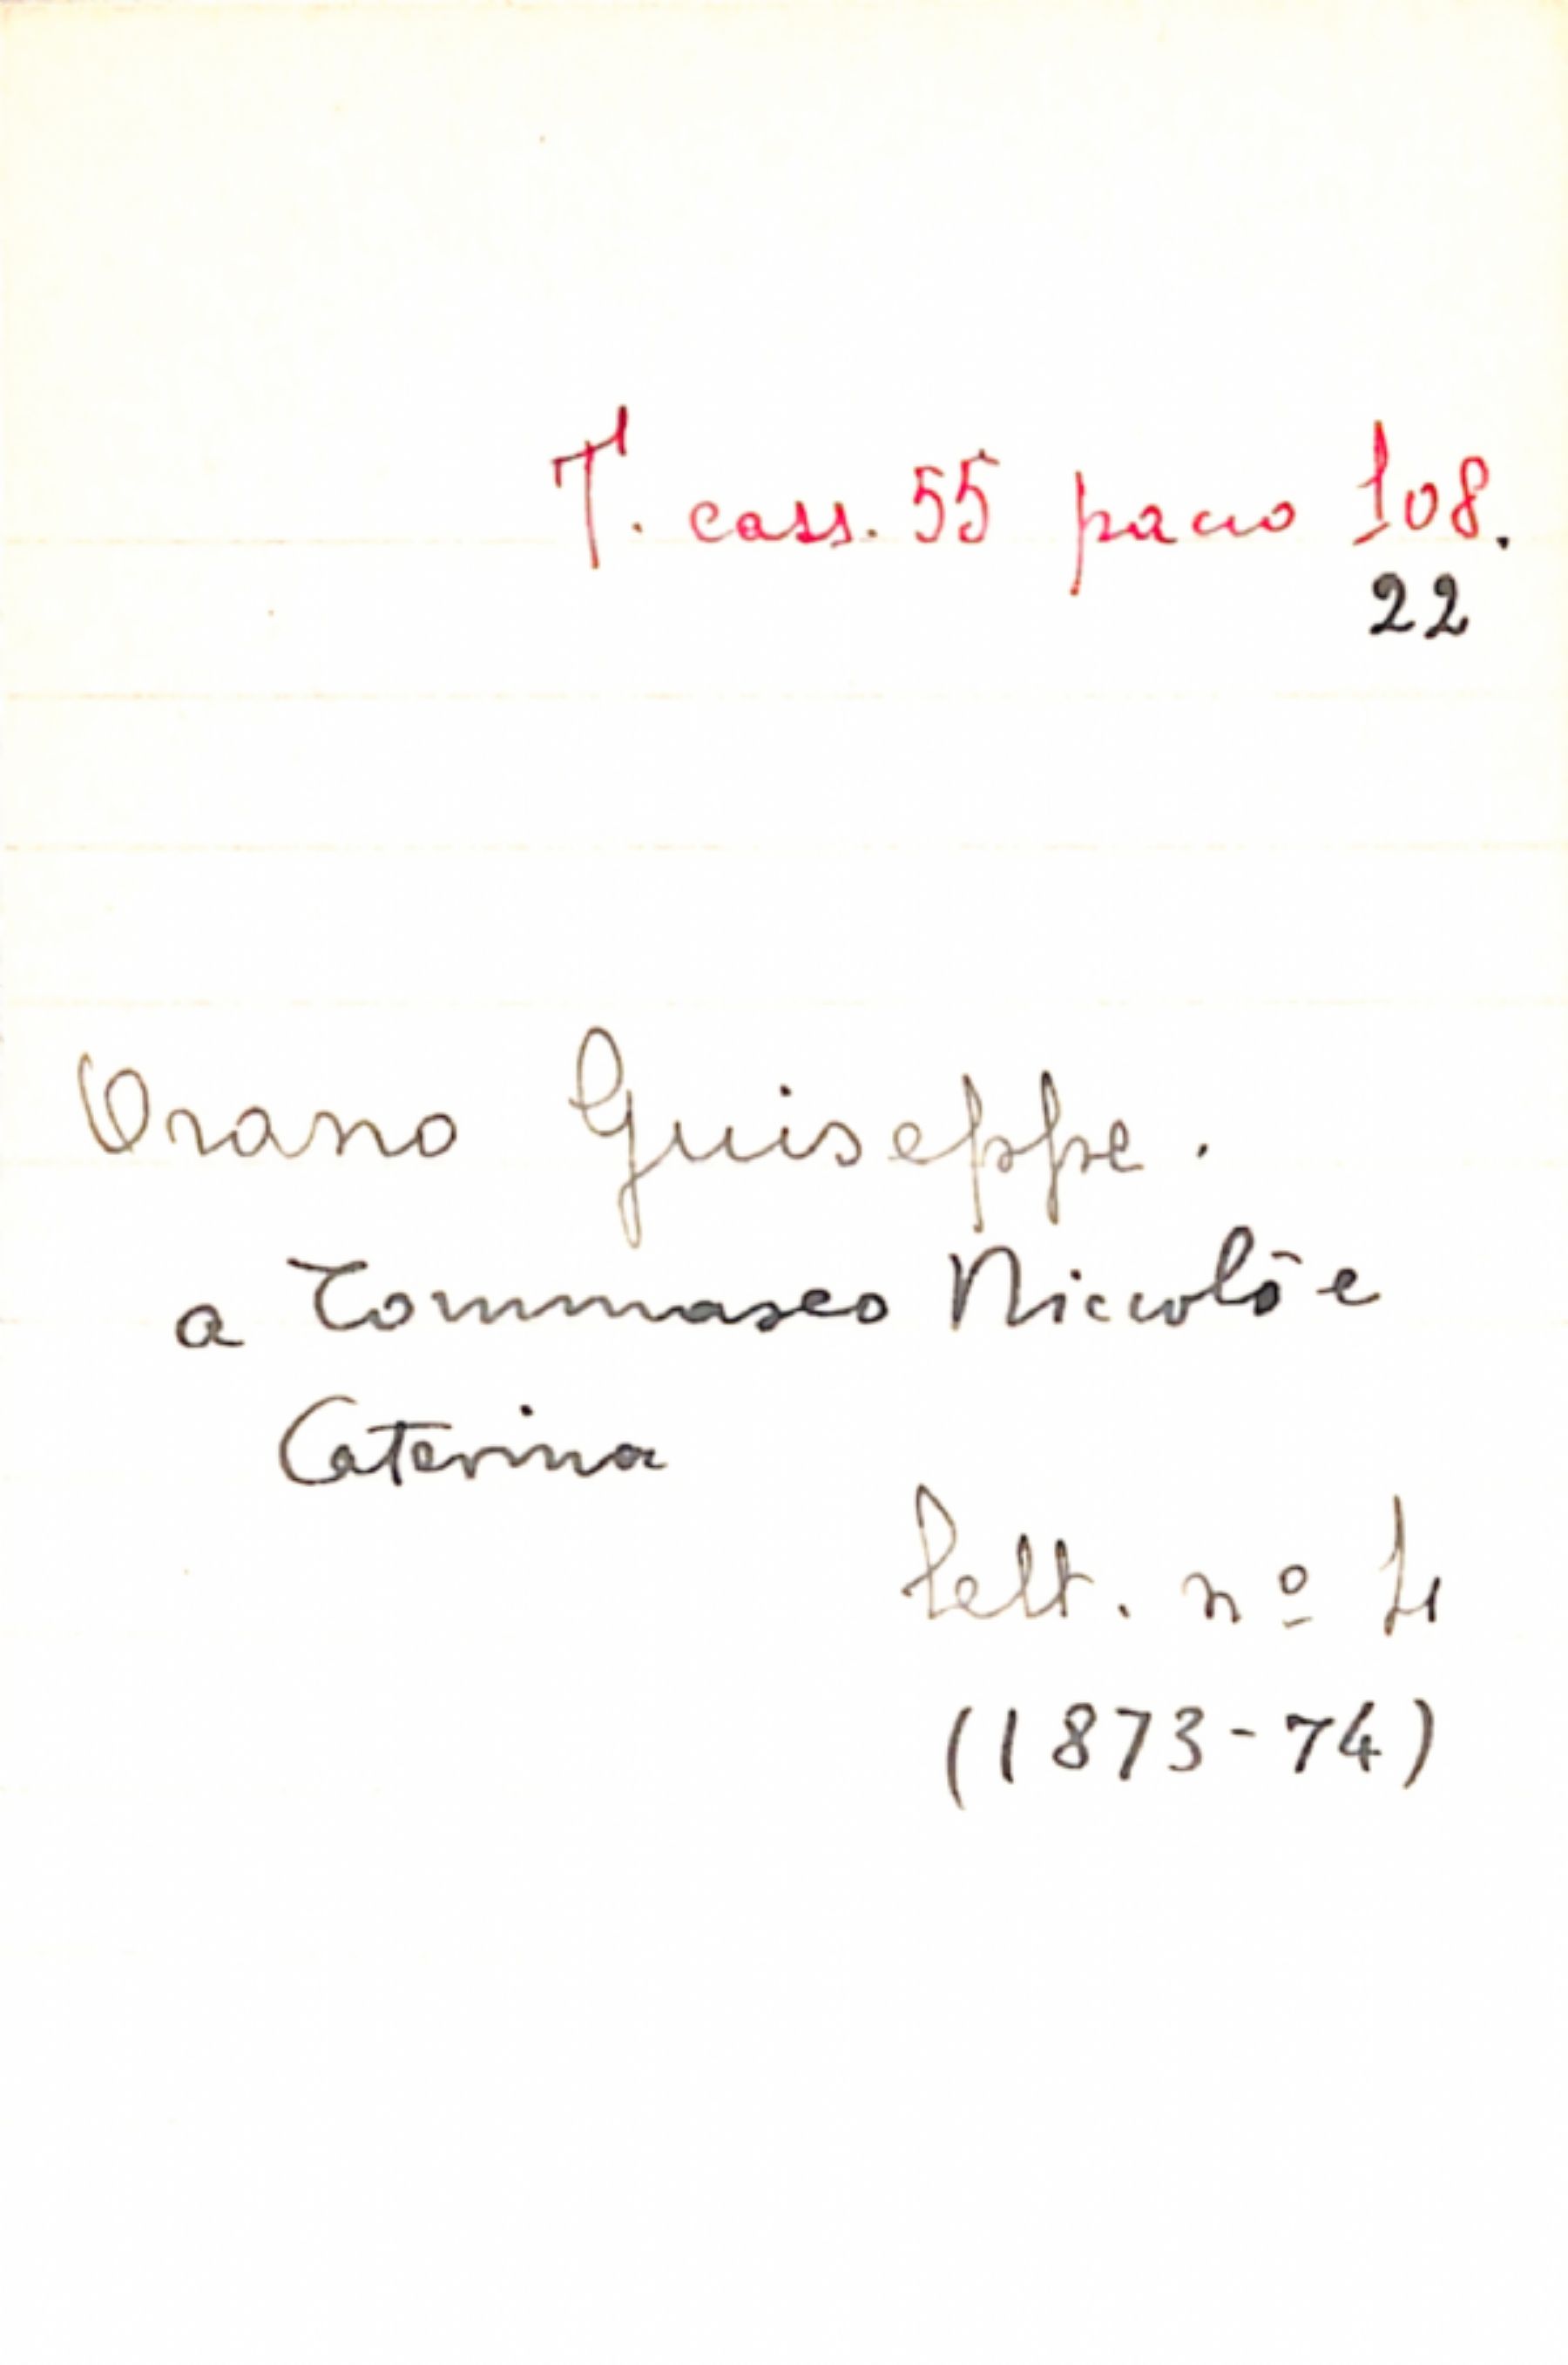 T. cass. 55 pacco 108.
22
Orano Guiseppe.
a Tommaseo Niccolò e
Caterina
lett. nº 4
(1873-74)